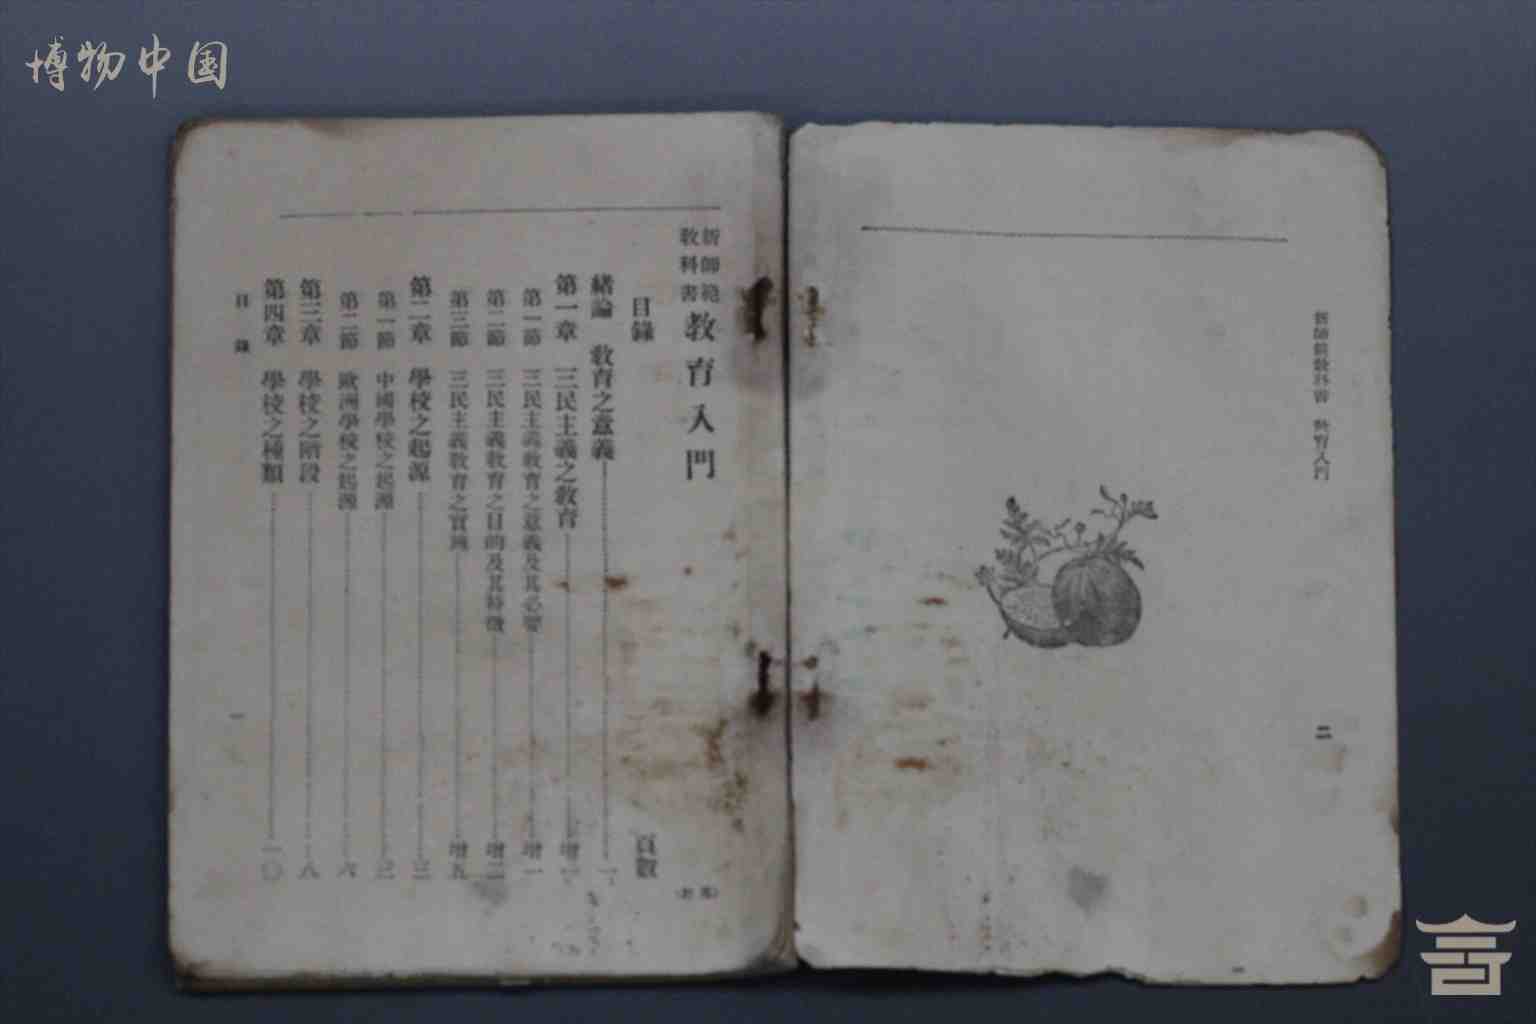 博物中国
新師範教科書 教育入門
二
新師範教科書 教育入門
目錄
頁數
緒論 教育之意義 一
第一章 三民主義之教育 增一
第一節 三民主義教育之意義及其必要 增一
第二節 三民主義教育之目的及其特徵 增二
第三節 三民主義教育之實施 增五
第二章 學校之起源 三
第一節 中國學校之起源 三
第二節 歐洲學校之起源 六
第三章 學校之階段 八
第四章 學校之種類 一〇
目錄
一